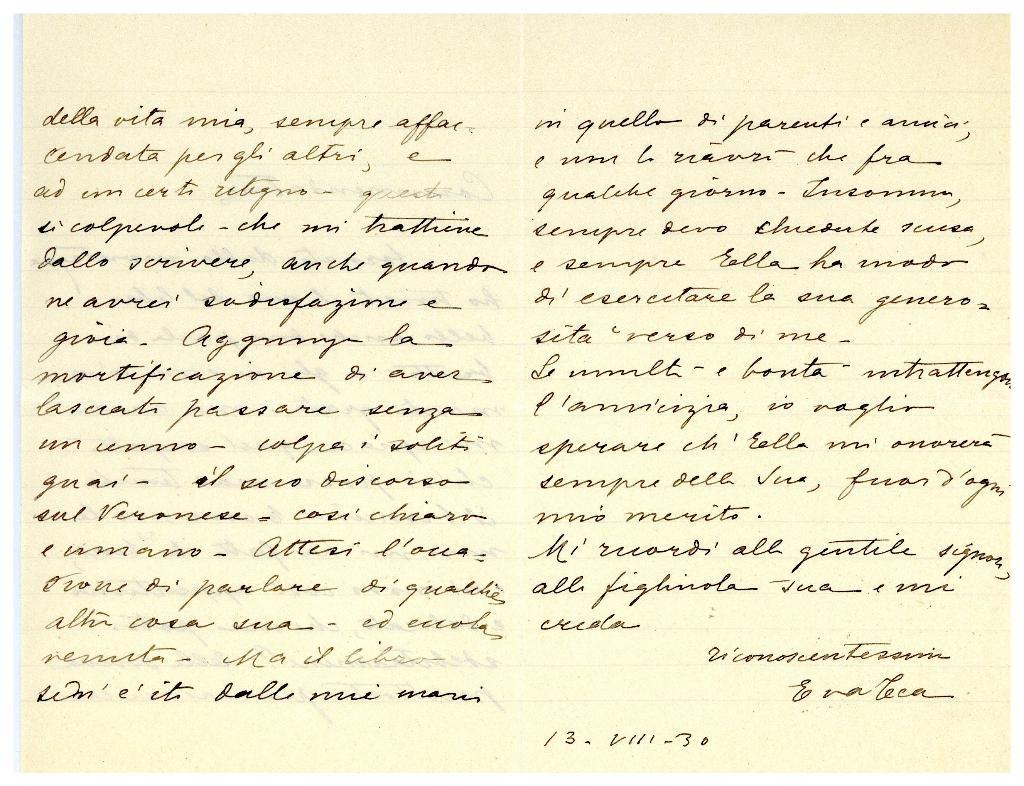 della vita mia, sempre affac-
cendata per gli altri, e
ad un certo ritegno - questo
sì colpevole - che mi trattiene
dallo scrivere, anche quando
ne avrei sodisfazione e
gioia. Aggiunga la
mortificazione di aver
lasciato passare senza
un cenno - colpa i soliti
guai - il suo discorso
sul Veronese - così chiaro
e umano - Attesi l'occa-
sione di parlare di qualche
altra cosa sua - ed eccola
venuta - Ma il libro
se n'è ito dalle mie mani
in quelle di parenti e amici,
e non lo riavrò che fra
qualche giorno - Insomma,
sempre devo chiederle scusa,
e sempre Ella ha modo
di esercitare la sua genero-
sità verso di me -
Se umiltà e bontà intrattengon
l'amicizia, io voglio
sperare ch'Ella mi onorerà
sempre della Sua, fuor d'ogni
mio merito.
Mi ricordi alla gentile signora,
alla figliuola Sua e mi
creda
riconoscentissima
Eva Tea
13 - VIII - 30